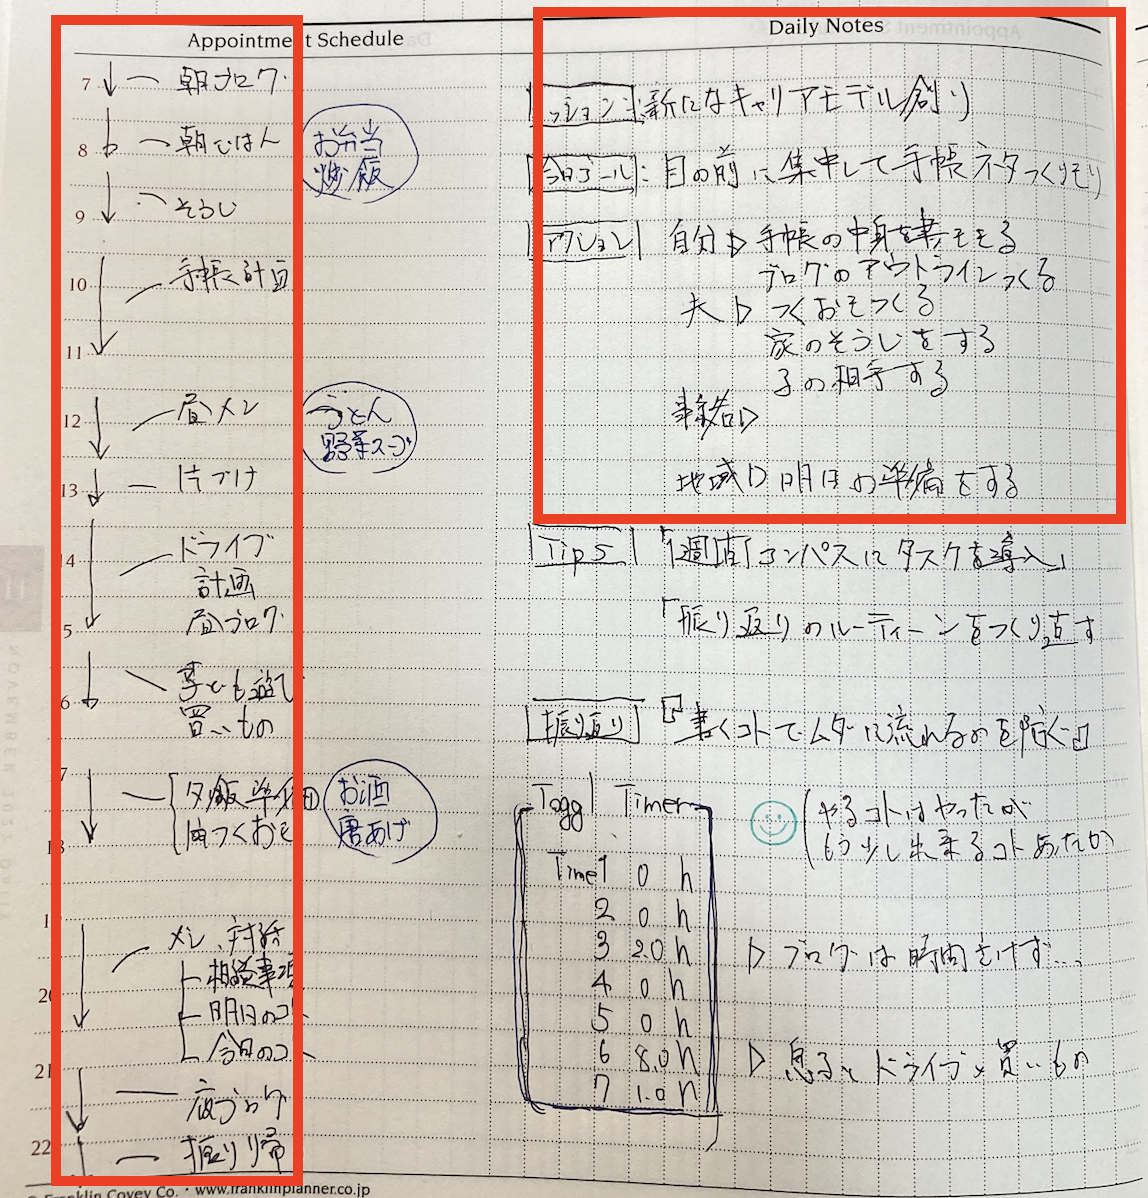 Appointment Schedule
7 朝ブログ
8 朝ごはん
お弁当
炒飯
9 そうじ
10 手帳計画
11
12 昼メシ
うどん
野菜スープ
13 片づけ
14 ドライブ
計画
5 昼ブログ
6 子ども遊び
買いもの
7 夕飯準備
肉つくおき
お酒
唐あげ
メシ、対話
相談事項
20 明日のコト
今日のコト
21
夜ブログ
22 振り帰
Franklin Covey Co. · www.franklinplanner.co.jp
Daily Notes
ミッション:新たなキャリアモデル創り
今日ゴール:目の前に集中して手帳ネタつくりきり
アクション 自分▷手帳の中身を書
ブログのアウトラインつくる
夫▷つくおきつくる
家のそうじをする
子の相手する
地域▷明日の準備をする
Tips 「1週間コンパスにタスクを導入」
「振り返りのルーティーンをつくり直す
振り返り 『書くコトでムダに流れるのを防ぐ』
Toggl Timer
Time1 0 h
2 0 h
3 2.0 h
4 0 h
5 0 h
6 8.0 h
7 1.0 h
やるコトはやったが
もう少し出来るコトあったか
▷ ブログは時間をけず...
▷ 息ると ドライブ×買いもの
NOVEMBER